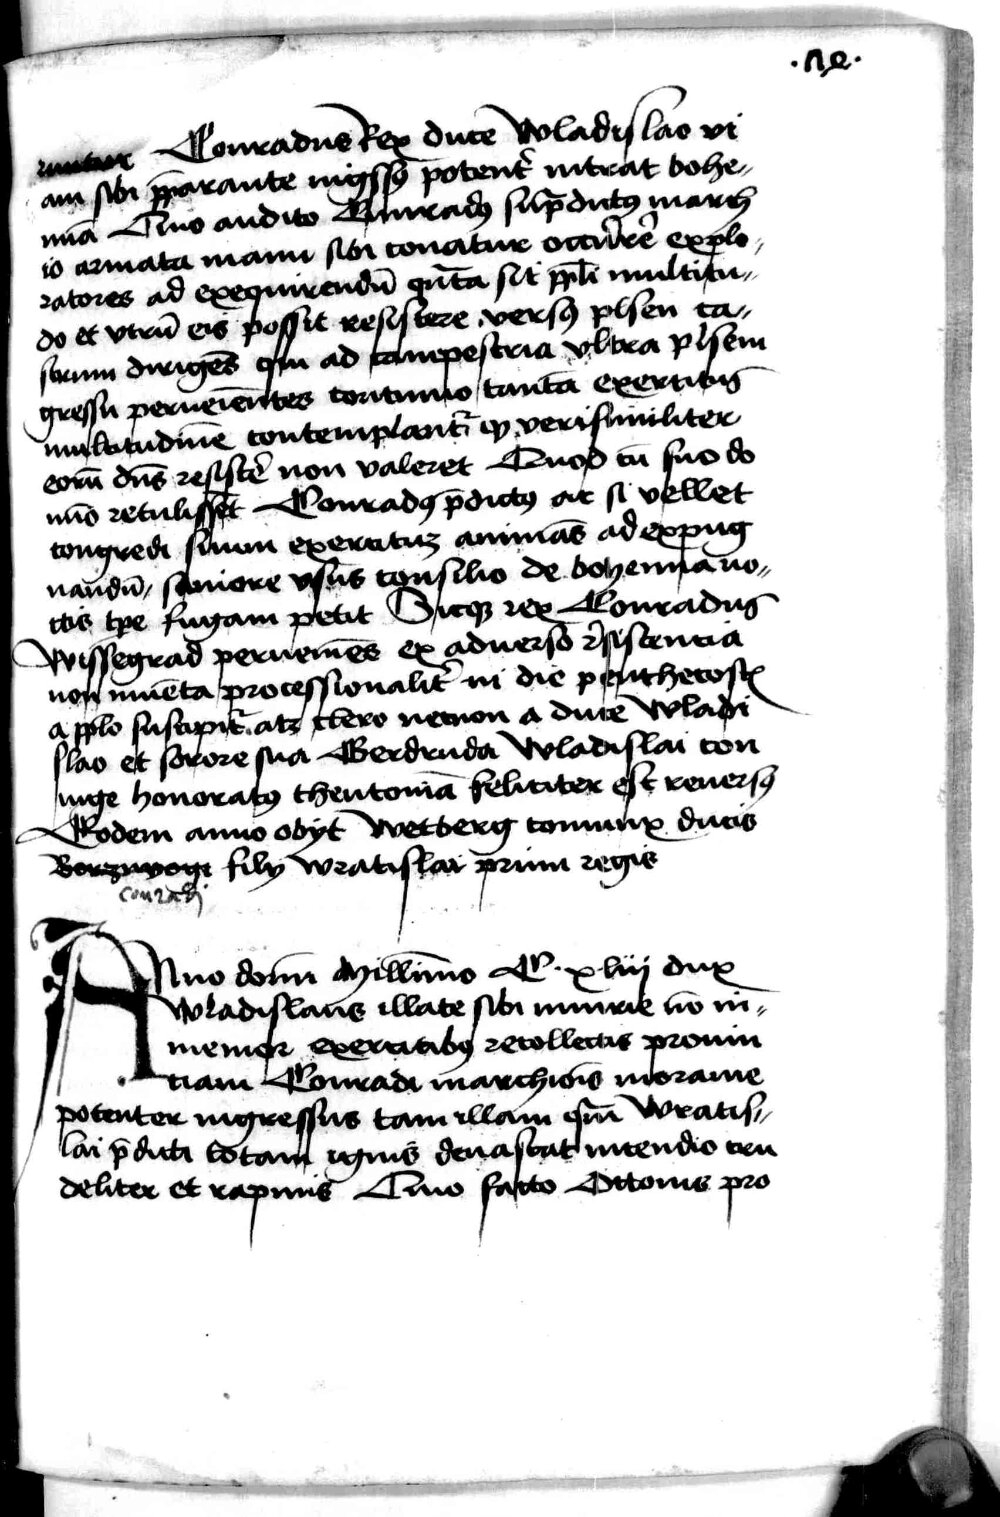 ·ne·
runtur Conradus Rex duce Wladislao vi
am sibi p̄parante nigssꝰ potent̄ intrat bohe-
miā Quo audito Cunradꝰ sup̄dictꝰ march
io armata manu sibi conatur occurrē explo-
ratores ad exequirendū qn̄ta sit ppl̄i multitu-
do et vtrū eis possit resistere versꝰ plsen ca-
strum dirigēs qui ad campestria vltra plsem
gressu perueiēntes continuo tantā exercitus
multitudinē contemplant̄ ꝙ verisimiliter
eorū dn̄s resistē non valeret Quod cū suo do
mīo retulissēt Conradꝰ p̄dictꝰ ac si vellet
congredi suum exercitum animās ad expug
nandū, saniore vsus consilio de bohemia no-
ctis tp̄e fugam petit Sicqꝫ rex Conradus
Wissegrad perueniēs ex aduerso r̄sistencia
non inuēta processionalit̄ in die penthecostꝭ
a pplo suscipit̄ atqꝫ clero necnon a duce Wladi
slao et sorore sua Gerdruda Wladislai con
iuge honoratꝰ theutoniā feliciter est reuersꝰ
Eodem anno obyt Wetberg coniunx ducis
Borzuwogi fily wratislai primi regis
conradi
Anno domī Millīmo C· xliij dux
Wladislaus illate sibi iniurie nō in-
memor exercitibꝰ recollectis prouin
tiam Conradi marchiōis morauie
potenter ingressus tam illam qm̄ Wratis-
lai p̄dicti totam ignis deuastat incendio cru
deliter et rapinis Quo facto Ottonis pro